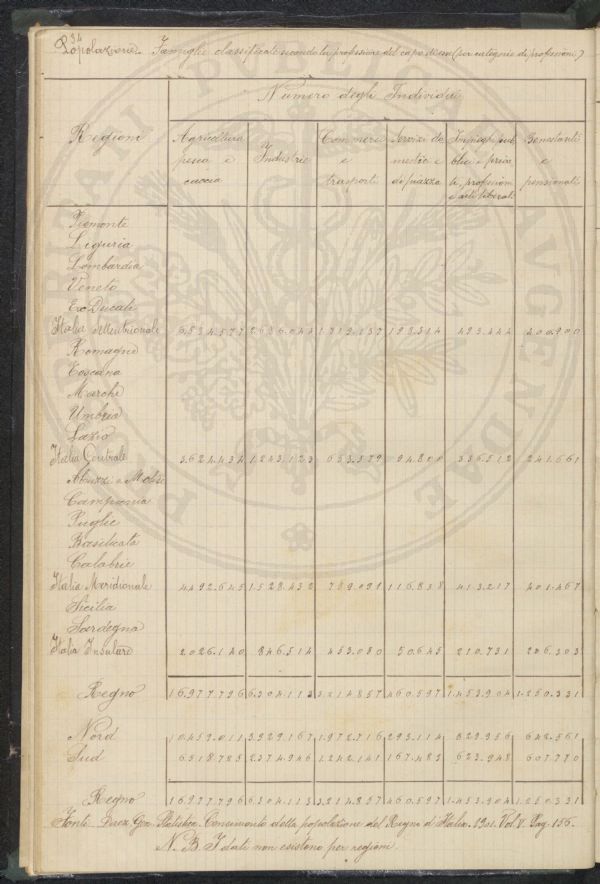 34
Popolazione. Famiglie classificate secondo la professione del capo di esse (per categorie di professioni)
Numero degli Individui
Regioni Agricoltura pesca e caccia Industrie Commerci e trasporti Servizi domestici e di piazza Impieghi pubblici e privati, professioni e arti liberali Benestanti e pensionati
Piemonte
Liguria
Lombardia
Veneto
Ex Ducati
Italia Settentrionale 6.834.577 2.686.044 1.319.137 198.314 493.444 400.900
Romagne
Toscana
Marche
Umbria
Lazio
Italia Centrale 3.624.434 1.243.123 653.579 94.800 336.512 241.661
Abruzzi e Molise
Campania
Puglie
Basilicata
Calabrie
Italia Meridionale 4.492.645 1.528.432 789.061 116.838 413.217 401.467
Sicilia
Sardegna
Italia Insulare 2.026.140 846.514 453.080 50.645 210.731 206.303
Regno 16.977.796 6.304.113 3.214.857 460.597 1.453.904 1.250.331
Nord 10.459.011 3.929.167 1.972.716 293.114 829.956 642.561
Sud 6.518.785 2.374.946 1.242.141 167.483 623.948 607.770
Regno 16.977.796 6.304.113 3.214.857 460.597 1.453.904 1.250.331
Fonti. Direz. Gen. Statistica. Censimento della popolazione del Regno d'Italia. 1901. Vol. V. Pag. 156.
N. B. I dati non esistono per regioni.